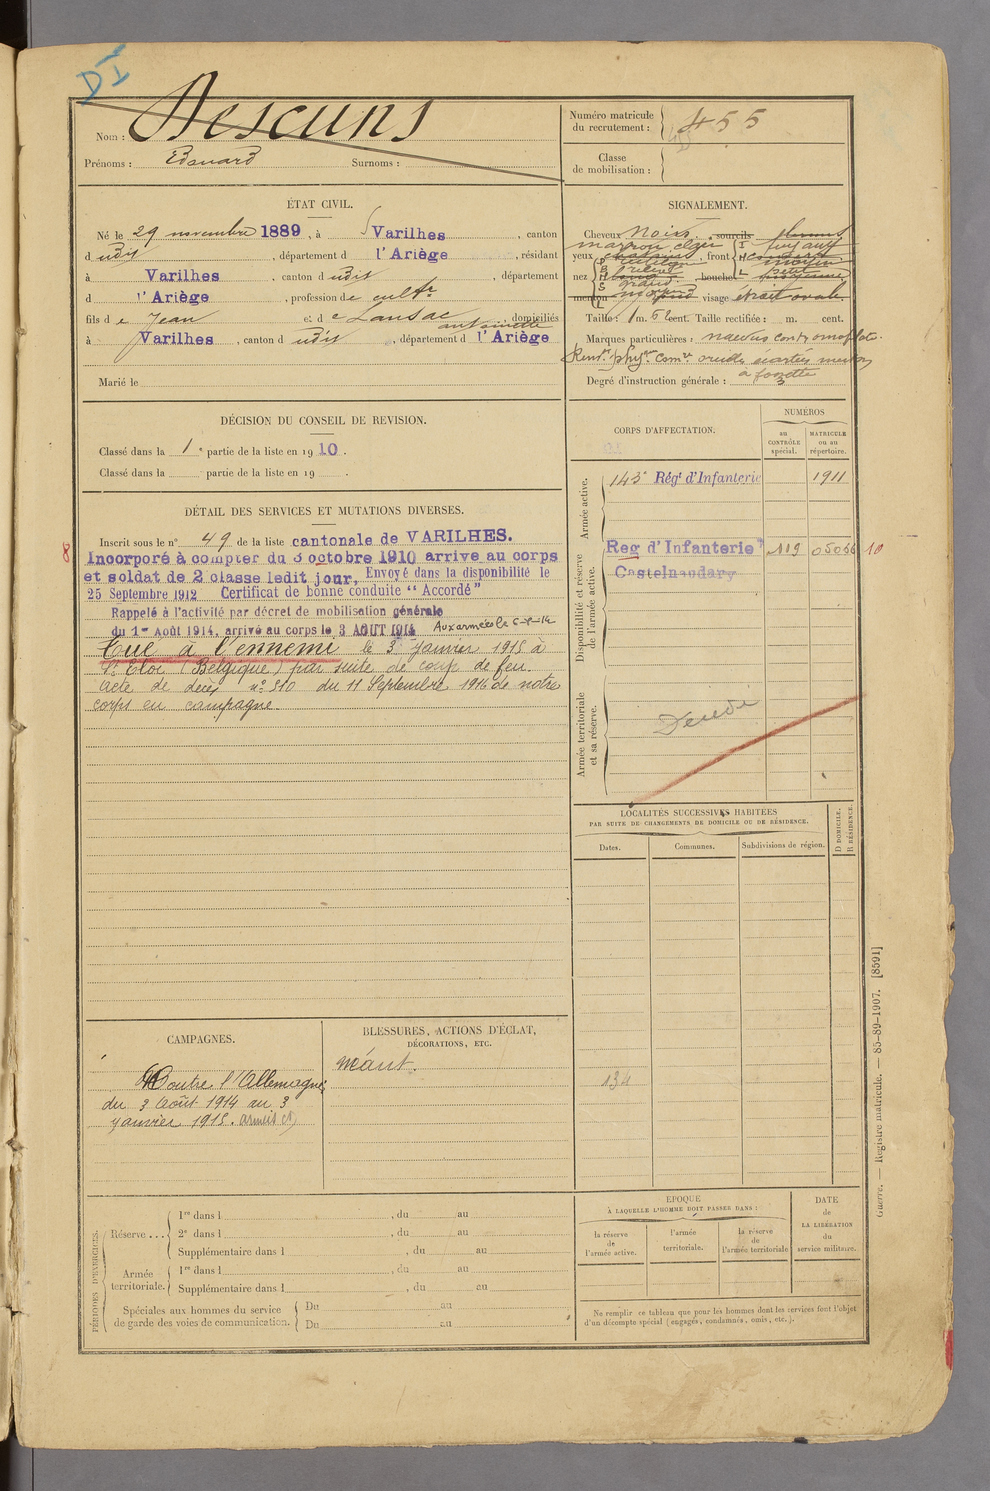 DI
Nom : Descuns
Prénoms : Edouard Surnoms :
Numéro matricule du recrutement : 455
Classe de mobilisation :
ÉTAT CIVIL.
Né le 29 novembre 1889, à Varilhes, canton
d udit, département d l'Ariège, résidant
à Varilhes, canton d udit, département
d l'Ariège, profession de cultr
fils de Jean et de Lansac antoinette domiciliés
à Varilhes, canton d udit, département d l'Ariège
Marié le
SIGNALEMENT.
Cheveux noirs, sourcils
marron clair
yeux, front
nez, bouche
menton, visage étroit ovale.
Taille : 1 m. 62 cent. Taille rectifiée : m. cent.
Marques particulières : naevus
Rensts physqes comres oreilles écartées menton
à fossette
Degré d'instruction générale : 3
DÉCISION DU CONSEIL DE REVISION.
Classé dans la 1e partie de la liste en 1910.
Classé dans la partie de la liste en 19 .
DÉTAIL DES SERVICES ET MUTATIONS DIVERSES.
Inscrit sous le n° 49 de la liste cantonale de VARILHES.
8 Incorporé à compter du 3 octobre 1910 arrive au corps
et soldat de 2 classe ledit jour, Envoyé dans la disponibilité le
25 Septembre 1912 Certificat de bonne conduite "Accordé"
Rappelé à l'activité par décret de mobilisation générale
du 1er Août 1914, arrivé au corps le 3 AOUT 1914 Aux armées le 6-8-14
Tué à l'ennemi le 3 janvier 1915 à
St Eloi (Belgique) par suite de coup de feu.
Acte de décès n° 510 du 11 Septembre 1916 de notre
corps en campagne
CORPS D'AFFECTATION.
NUMÉROS
au CONTRÔLE spécial.
MATRICULE ou au répertoire.
Armée active.
143e Régt d'Infanterie 1911
Disponibilité et réserve de l'armée active.
Reg d'Infanterie 119 05066 10
Castelnaudary
Armée territoriale et sa réserve.
Décédé
LOCALITÉS SUCCESSIVES HABITÉES
PAR SUITE DE CHANGEMENTS DE DOMICILE OU DE RÉSIDENCE.
Dates. Communes. Subdivisions de région. D DOMICILE. R RÉSIDENCE.
134
CAMPAGNES.
Contre l'Allemagne
du 3 Août 1914 au 3
janvier 1915.
BLESSURES, ACTIONS D'ÉCLAT,
DÉCORATIONS, ETC.
Néant.
PÉRIODES D'EXERCICES.
Réserve ...
1re dans l , du au
2e dans l , du au
Supplémentaire dans l , du au
Armée territoriale.
1re dans l , du au
Supplémentaire dans l , du au
Spéciales aux hommes du service
de garde des voies de communication.
Du au
Du au
EPOQUE
À LAQUELLE L'HOMME DOIT PASSER DANS :
la réserve de l'armée active.
l'armée territoriale.
la réserve de l'armée territoriale
DATE de LA LIBÉRATION du service militaire.
Ne remplir ce tableau que pour les hommes dont les services font l'objet
d'un décompte spécial (engagés, condamnés, omis, etc.).
Guerre. — Registre matricule. — 85-89-1907. [8591]